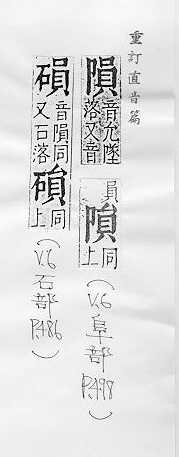 重訂直音篇
隕 音允墜落又音員
隕 同上
(V.6 阜部 P.498)
磒 音隕同又石落
磒 同上
(V.6 石部 P.486)